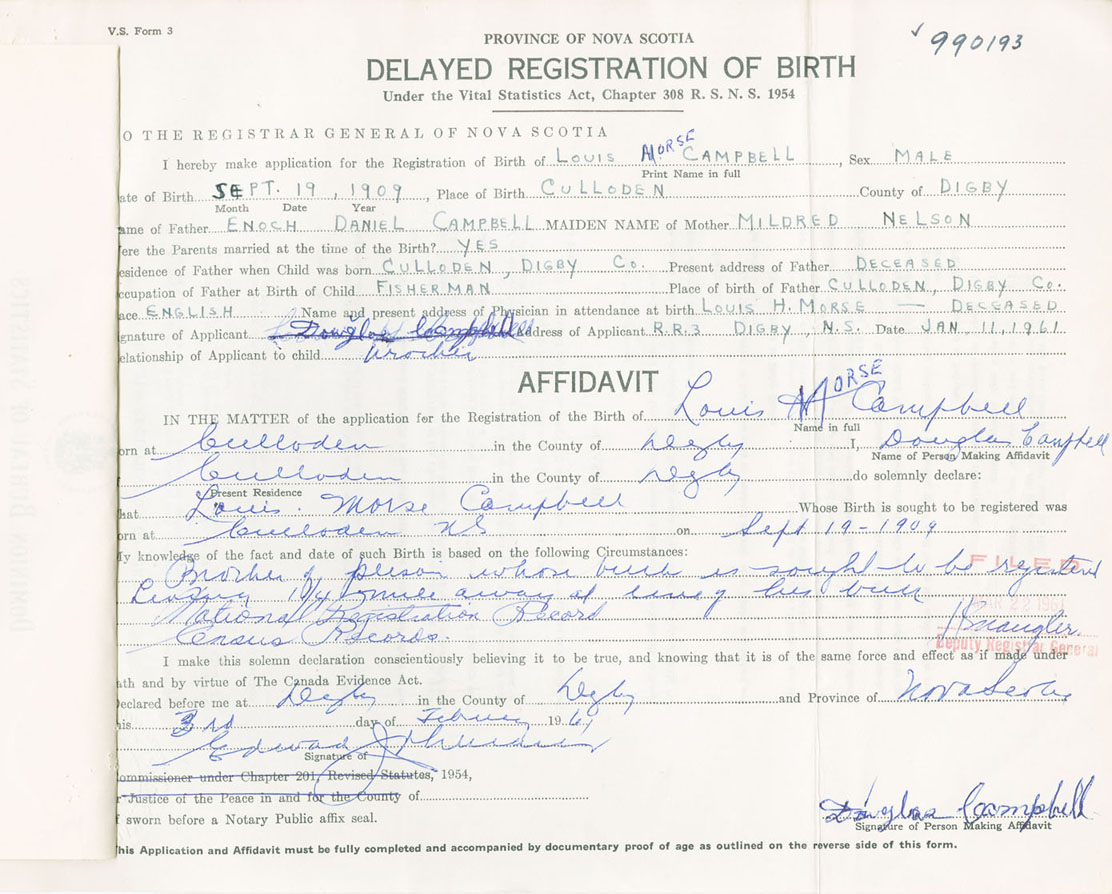 V.S. Form 3
990193
PROVINCE OF NOVA SCOTIA
DELAYED REGISTRATION OF BIRTH
Under the Vital Statistics Act, Chapter 308 R. S. N. S. 1954
O THE REGISTRAR GENERAL OF NOVA SCOTIA
I hereby make application for the Registration of Birth of LOUIS MORSE CAMPBELL, Sex MALE
Print Name in full
ate of Birth SEPT. 19, 1909, Place of Birth CULLODEN County of DIGBY
Month Date Year
ame of Father ENOCH DANIEL CAMPBELL MAIDEN NAME of Mother MILDRED NELSON
ere the Parents married at the time of the Birth? YES
esidence of Father when Child was born CULLODEN, DIGBY CO. Present address of Father DECEASED
ccupation of Father at Birth of Child FISHERMAN Place of birth of Father CULLODEN, DIGBY CO.
ace ENGLISH Name and present address of Physician in attendance at birth LOUIS H. MORSE — DECEASED
gnature of Applicant Douglas Campbell ddress of Applicant R.R.3 DIGBY, N.S. Date JAN. 11, 1961
elationship of Applicant to child brother
AFFIDAVIT
IN THE MATTER of the application for the Registration of the Birth of Louis MORSE Campbell
Name in full
orn at Culloden in the County of Digby I, Douglas Campbell
Name of Person Making Affidavit
f Culloden in the County of Digby do solemnly declare:
Present Residence
hat Louis Morse Campbell Whose Birth is sought to be registered was
orn at Culloden NS on Sept 19-1909
y knowledge of the fact and date of such Birth is based on the following Circumstances:
Brother of person whose birth is sought to be registered
Living 1/4 mile away at time of his birth
National Registration Record
Census Records.
FILED
Deputy Registrar General
I make this solemn declaration conscientiously believing it to be true, and knowing that it is of the same force and effect as if made under
ath and by virtue of The Canada Evidence Act.
eclared before me at Digby in the County of Digby and Province of Nova Scotia
is 3rd day of February 1961
Edward
Signature of
ommissioner under Chapter 201, Revised Statutes, 1954,
r Justice of the Peace in and for the County of
f sworn before a Notary Public affix seal.
Douglas Campbell
Signature of Person Making Affidavit
his Application and Affidavit must be fully completed and accompanied by documentary proof of age as outlined on the reverse side of this form.